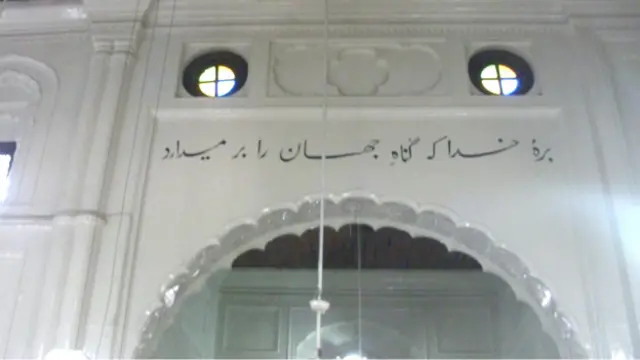 برهٔ خدا که گناهِ جهان را بر میدارد